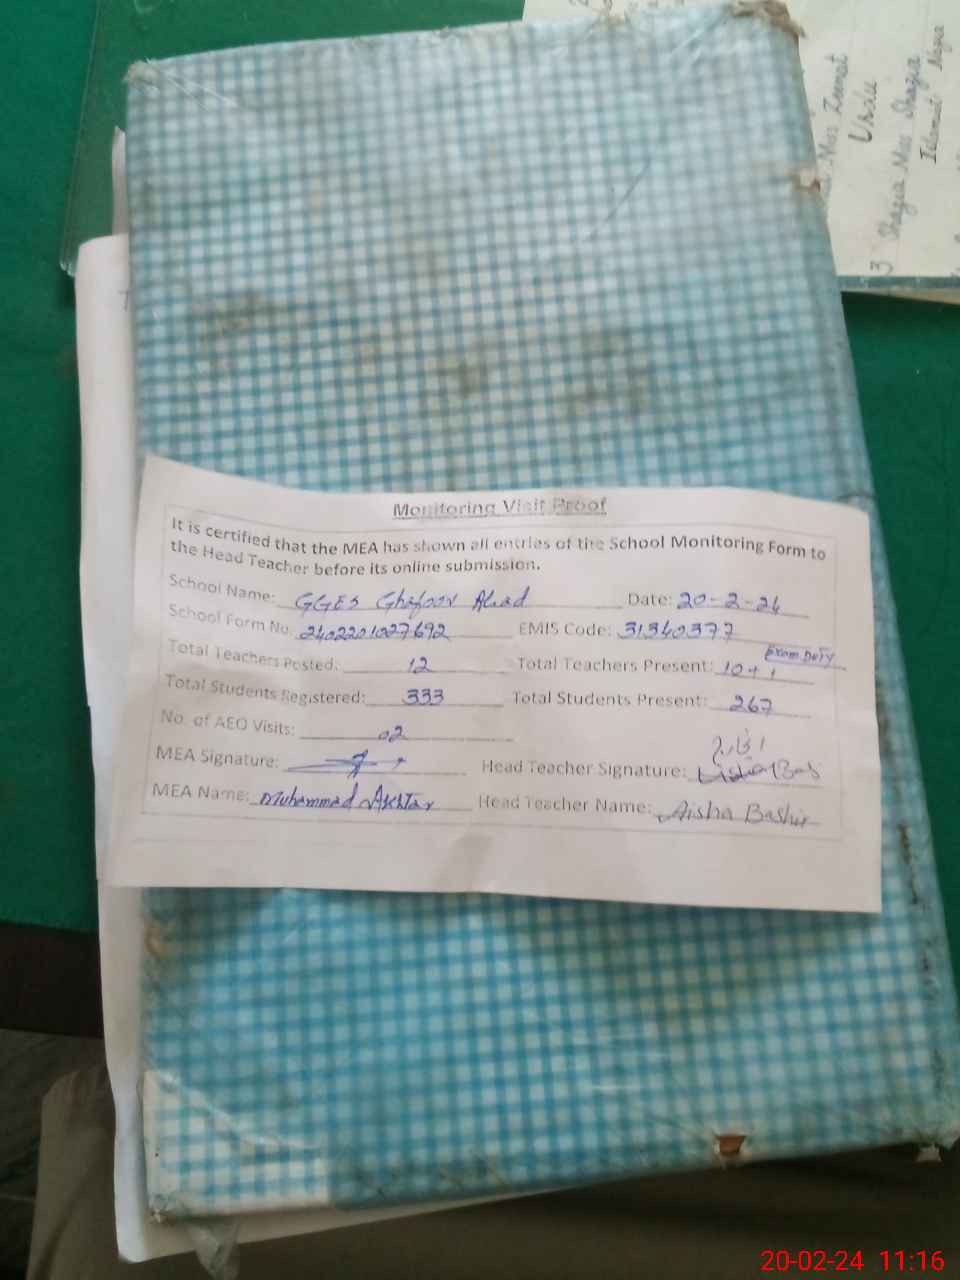 Miss Zeenat
Urdu
3 Shazia Miss Shazia
Islamiat Nazra
Monitoring Visit Proof
It is certified that the MEA has shown all entries of the School Monitoring Form to
the Head Teacher before its online submission.
School Name: GGES Ghafoor Abad Date: 20-2-24
School Form No. 2402201027692 EMIS Code: 31340377
Total Teachers Posted: 12 Total Teachers Present: 10+1 Exam Duty
Total Students Registered: 333 Total Students Present: 267
No. of AEO Visits: 02
MEA Signature: Head Teacher Signature:
MEA Name: Muhammad Akhtar Head Teacher Name: Aisha Bashir
20-02-24 11:16